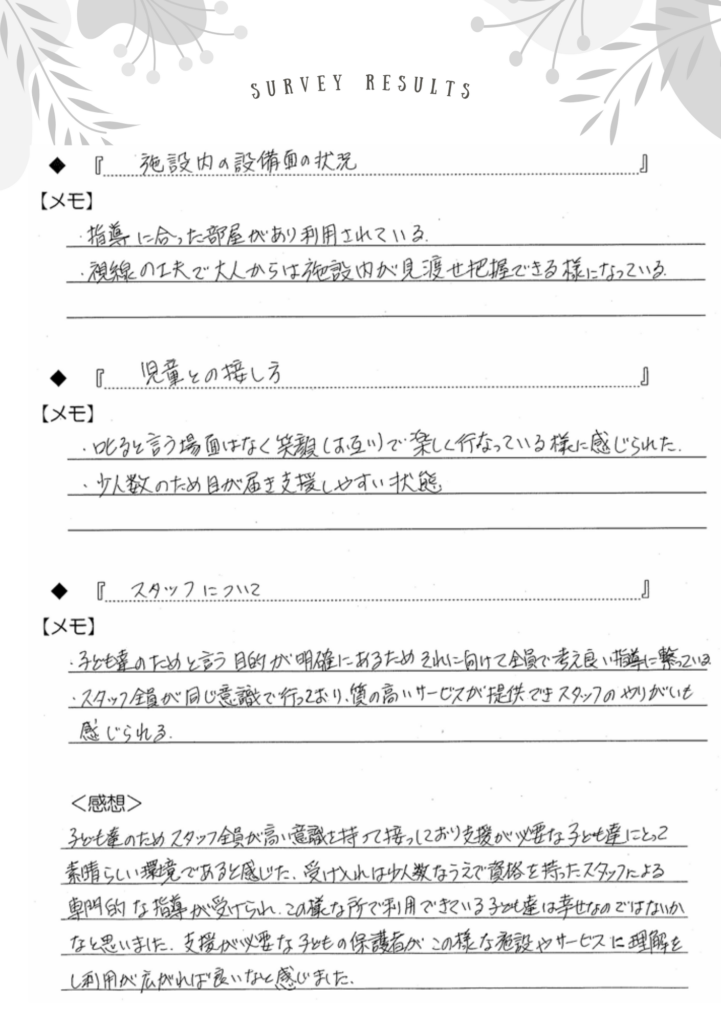 SURVEY RESULTS
◆ 『 施設内の設備面の状況 』
【メモ】
・指導に合った部屋があり利用されている.
・視線の工夫で大人からは施設内が見渡せ把握できる様になっている.
◆ 『 児童との接し方 』
【メモ】
・叱ると言う場面はなく笑顔(お互い)で楽しく行なっている様に感じられた.
・少人数のため目が届き支援しやすい状態
◆ 『 スタッフについて 』
【メモ】
・子ども達のためと言う目的が明確にあるためそれに向けて全員で考え良い指導に繋っている
・スタッフ全員が同じ意識で行っており、質の高いサービスが提供できスタッフのやりがいも
感じられる.
＜感想＞
子ども達のためスタッフ全員が高い意識を持って接っしており支援が必要な子ども達にとって
素晴らしい環境であると感じた. 受け入れは少人数なうえで資格を持ったスタッフによる
専門的な指導が受けられ、この様な所で利用できている子ども達は幸せなのではないか
なと思いました. 支援が必要な子どもの保護者がこの様な施設やサービスに理解を
し利用が広がれば良いなと感じました.